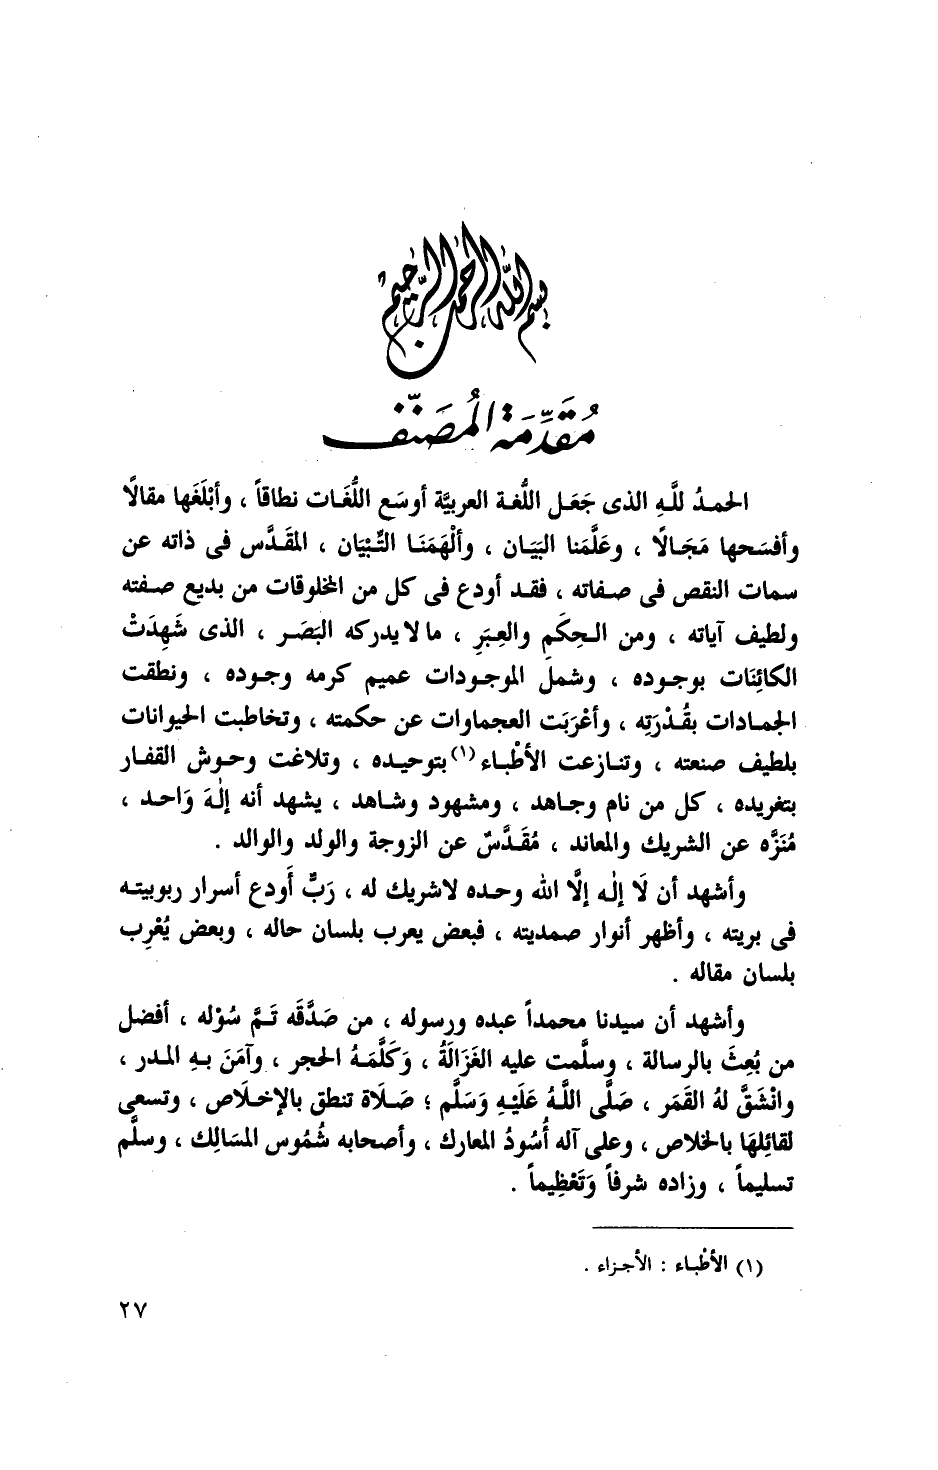 بسم الله الرحمن الرحيم
مُقَدِّمَة المُصَنّف
الحمدُ للَّهِ الذى جَعَل اللُّغة العربيَّة أوسَع اللُّغَات نطاقاً ، وأبْلَغَها مقالًا
وأفسَحها مَجَالًا ، وعَلَّمَنا البَيَان ، وألْهَمَنَا التِّبْيَان ، المقَدَّس فى ذاته عن
سمات النقص فى صفاته ، فقد أودع فى كل من المخلوقات من بديع صفته
ولطيف آياته ، ومن الحِكَمِ والعِبَرِ ، ما لا يدركه البَصَر ، الذى شَهِدَتْ
الكائِنَات بوجوده ، وشمل الموجودات عميم كرمه وجوده ، ونطقت
الجمادات بقُدْرَتِه ، وأعْرَبَت العجماوات عن حكمته ، وتخاطبت الحيوانات
بلطيف صنعته ، وتنازعت الأطْباء (١) بتوحيده ، وتلاغت وحوش القفار
بتغريده ، كل من نام وجاهد ، ومشهود وشاهد ، يشهد أنه إلٰهَ وَاحد ،
مُنَزَّه عن الشريك والمعاند ، مُقَدَّسٌ عن الزوجة والولد والوالد .
وأشهد أن لَا إلٰه إلَّا الله وحده لاشريك له ، رَبٌّ أَودع أسرار ربوبيته
فى بريته ، وأظهر أنوار صمديته ، فبعض يعرب بلسان حاله ، وبعض يُعْرِب
بلسان مقاله .
وأشهد أن سيدنا محمداً عبده ورسوله ، من صَدَّقَه تَمَّ سُوْله ، أفضل
من بُعِثَ بالرسالة ، وسلَّمت عليه الغَزَالَةُ ، وَكَلَّمَهُ الحجر ، وآمَنَ بهِ المدر ،
وانْشَقَّ لهُ القَمَر ، صَلَّى اللَّهُ عَلَيْهِ وَسَلَّم ؛ صَلَاة تنطق بالإخلَاص ، وتسعى
لقائِلهَا بالخلاص ، وعلى آله أُسُودُ المعارك ، وأصحابه شُمُوس المسَالِك ، وسلَّم
تسليماً ، وزاده شرفاً وَتَعْظِيماً .
(١) الأطْباء : الأجزاء .
٢٧